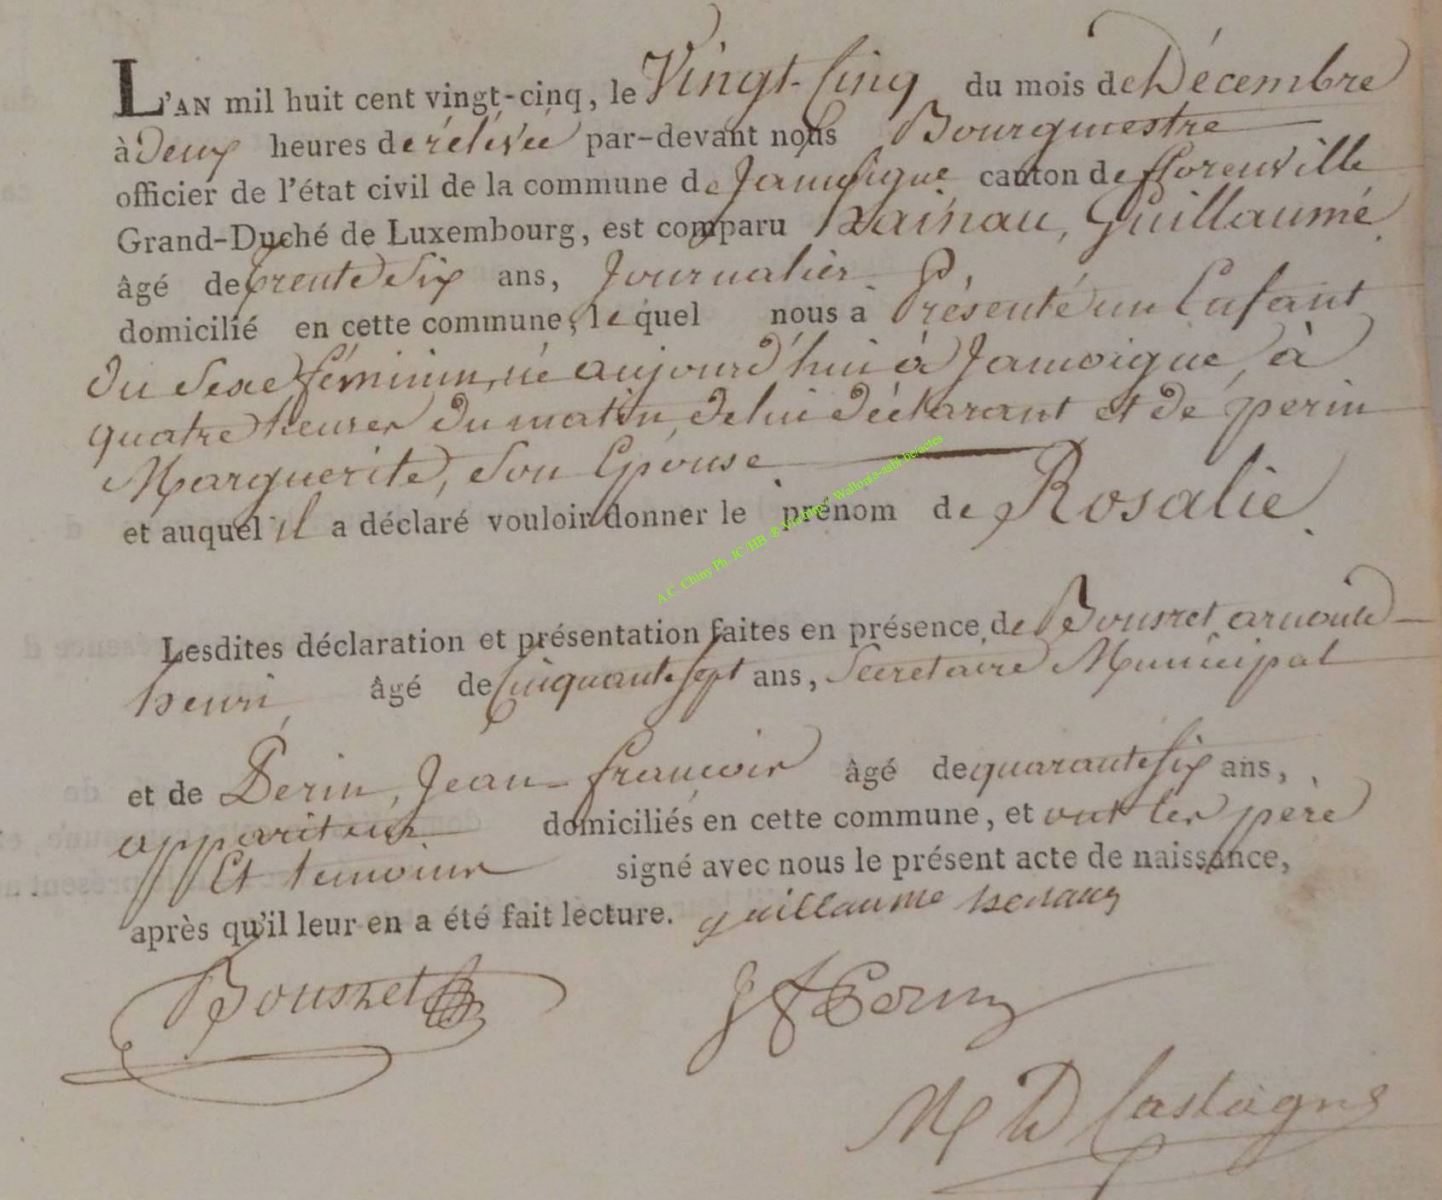 L'AN mil huit cent vingt-cinq, le Vingt-Cinq du mois de Décembre
à deux heures de rélévée par-devant nous Bourgmestre
officier de l'état civil de la commune de Jamoigne canton de florenville
Grand-Duché de Luxembourg, est comparu hainau, Guillaume
âgé de trente Six ans, Journalier
domicilié en cette commune, le quel nous a Présenté un Enfant
du Sexe féminin, né aujourd'hui à Jamoigne, à
quatre heures du matin, de lui déclarant et de perin
Marguerite, Son Epouse
et auquel il a déclaré vouloir donner le prénom de Rosalie.
Lesdites déclaration et présentation faites en présence de Bousret arnould
henri âgé de Cinquante sept ans, Secretaire Municipal
et de Perin, Jean-françois âgé de quarante six ans,
appariteur domiciliés en cette commune, et ont les père
Et temoins signé avec nous le présent acte de naissance,
après qu'il leur en a été fait lecture. guillaume henaux
Bousret
J F Perin
M D Castagne
A.C. Chiny Ph. JC/HB